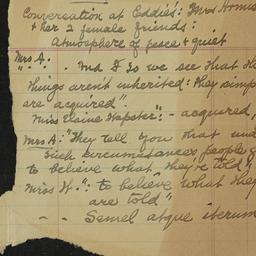 Conversation at Eddie's: Mrs
& her 2 female friends:
Atmosphere of peace & quiet
Mrs A:
". . And I do we see that the
things aren't inherited: they simp
are acquired".
Miss Elaine Hapster: - acquired,
Mrs A: "They tell you that und
such circumstances people
to believe what they're told",
Miss H.": to believe what they
are told"
- - Semel atque iterum